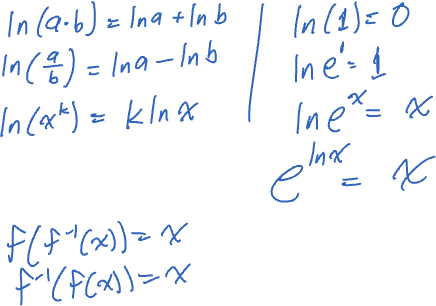 ln(a·b) = ln a + ln b
ln(a/b) = ln a − ln b
ln(x^k) = k ln x
ln(1) = 0
ln e^1 = 1
ln e^x = x
e^(ln x) = x
f(f^-1(x)) = x
f^-1(f(x)) = x